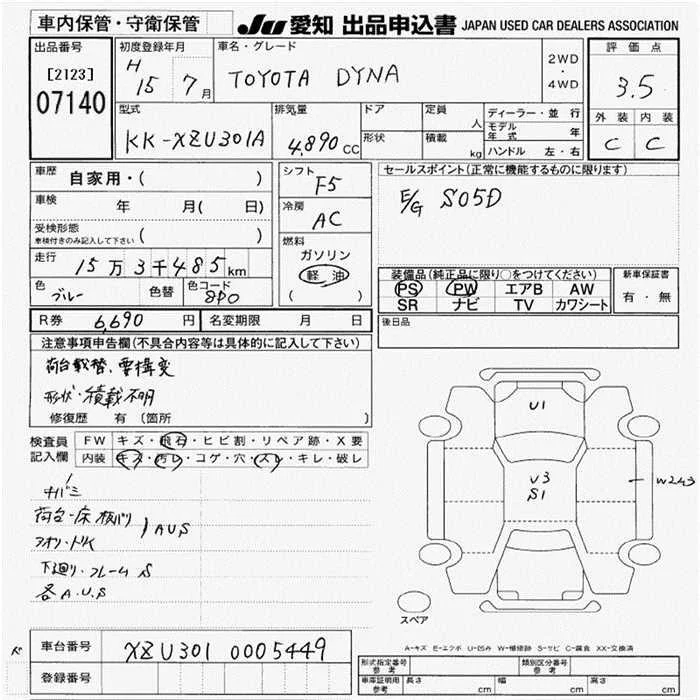 車内保管・守衛保管
JU 愛知 出品申込書 JAPAN USED CAR DEALERS ASSOCIATION
出品番号
[2123]
07140
初度登録年月
H 15 7月
車名・グレード
TOYOTA DYNA
2WD
・
4WD
評価点
3.5
型式
KK-XZU301A
排気量
4,890 cc
ドア
形状
定員
人
積載
kg
ディーラー・並行
モデル年式 年
ハンドル 左・右
外装 内装
C C
車歴 自家用・( )
車検 年 月( 日)
受検形態
車検付きのみ記入して下さい ( )
走行 15万3千485km
色 ブルー 色替 色コード 8P0
シフト F5
冷房 AC
燃料
ガソリン
軽油
( )
セールスポイント(正常に機能するものに限ります)
E/G S05D
装備品(純正品に限り○をつけてください)
PS PW エアB AW
SR ナビ TV カワシート
新車保証書
有・無
R券 6,690 円 名変期限 月 日
後日品
注意事項申告欄(不具合内容等は具体的に記入して下さい)
荷台載替、要構変
形状・積載不明
修復歴 有 (箇所 )
検査員
記入欄
FW キズ・飛石・ヒビ割・リペア跡・X要
内装 キズ・汚レ・コゲ・穴・スレ・キレ・破レ
荷台・床板バリ
AUS
下廻り・フレーム S
各A.U.S
U1
U3
S1
W2 43
スペア
A-キズ E-エクボ U-凹み W-補修跡 S-サビ C-腐食 XX-交換済
車台番号 XZU301 0005449
登録番号
形式指定番号
参考
類別区分番号
参考
車庫証明用
参考
長さ cm 幅 cm 高さ cm